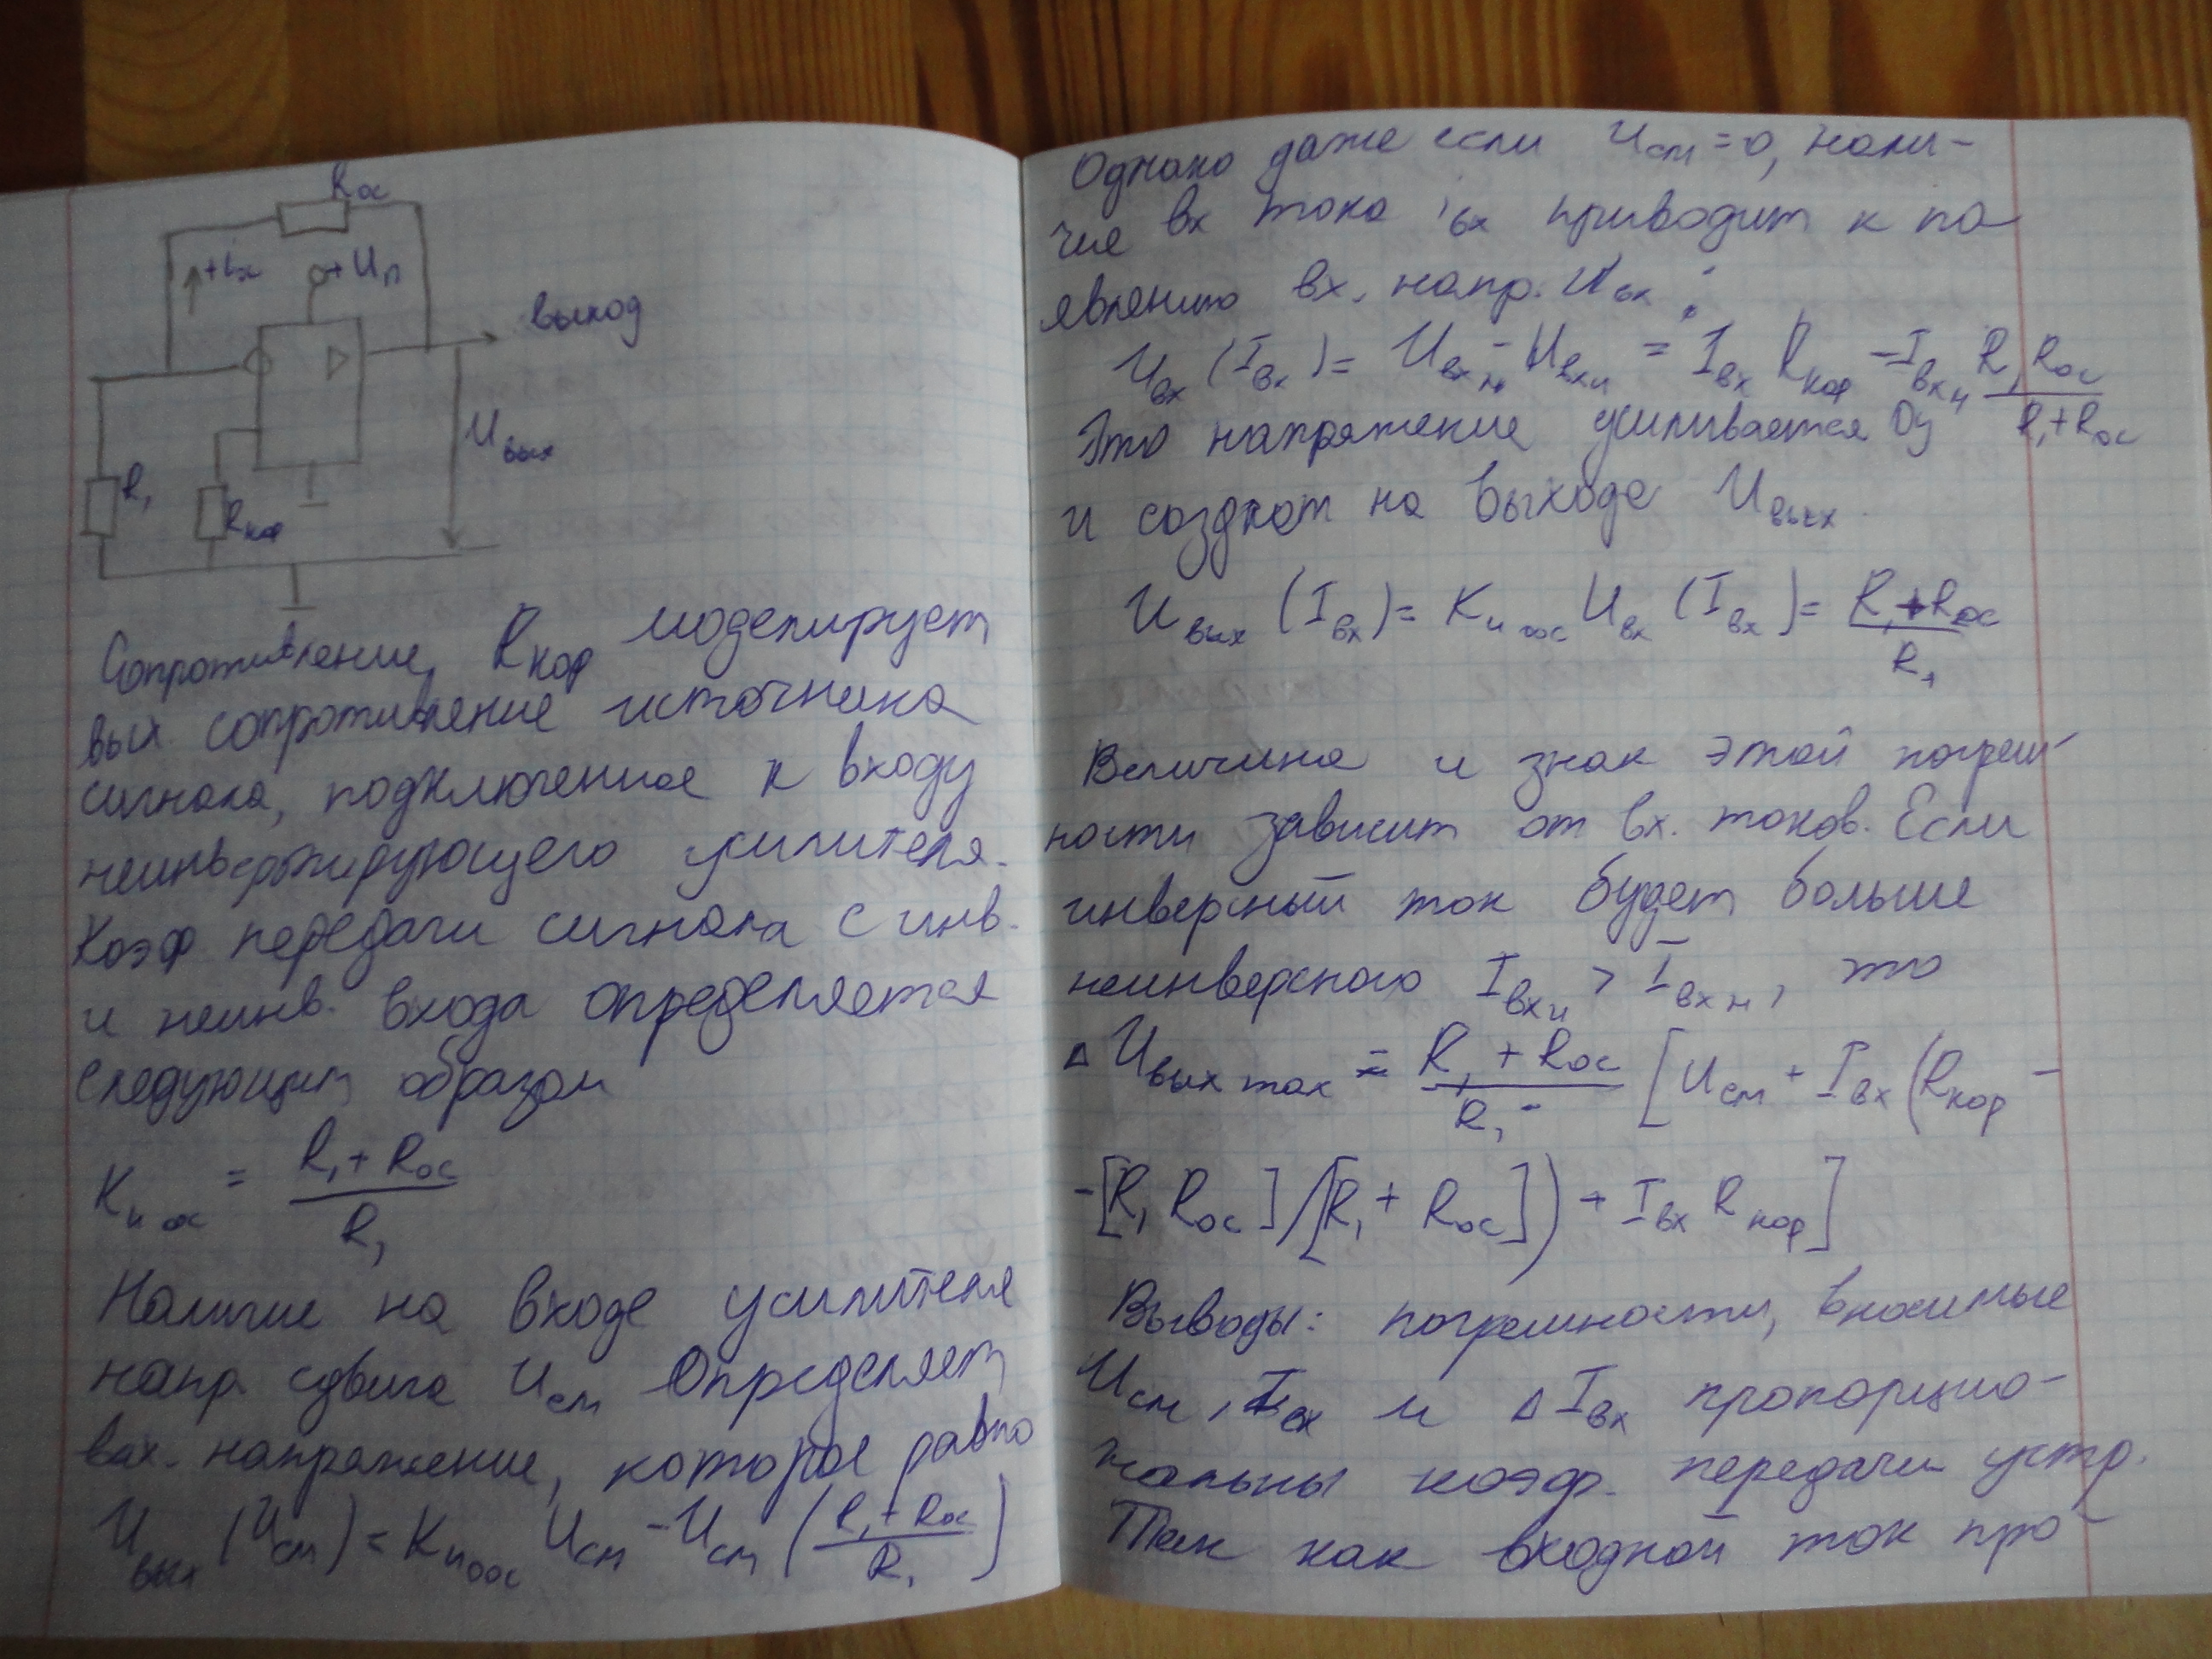 Rос
+Iвх
+Uп
выход
Uвых
R₁
Rкор
Сопротивление Rкор моделирует
вых. сопротивление источника
сигнала, подключенное к входу
неинвертирующего усилителя.
Коэф передачи сигнала с инв.
и неинв. входа определяется
следующим образом
Kи ос = (R₁ + Rос) / R₁
Наличие на входе усилителя
напр сдвига Uсм определяет
вых. напряжение, которое равно
Uвых (Uсм) = Kи оос Uсм = Uсм ((R₁ + Rос) / R₁)
Однако даже если Uсм = 0, нали-
чие вх тока iвх приводит к по
явлению вх. напр. Uвх :
Uвх (Iвх) = Uвх н - Uвх и = Iвх Rкор - Iвх н R₁Rос / (R₁ + Rос)
Это напряжение усиливается Оу
и создает на выходе Uвых
Uвых (Iвх) = Kи оос Uвх (Iвх) = (R₁ + Rос) / R₁
Величина и знак этой погреш-
ности зависит от вх. токов. Если
инверсный ток будет больше
неинверсного Iвх и > Iвх н, то
ΔUвых max = (R₁ + Rос) / R₁ [Uсм + Iвх (Rкор -
- [R₁ Rос] / [R₁ + Rос]) + Iвх Rкор]
Выводы: погрешности, вносимые
Uсм, Iвх и ΔIвх пропорцио-
нальны коэф. передачи устр.
Так как входной ток про-